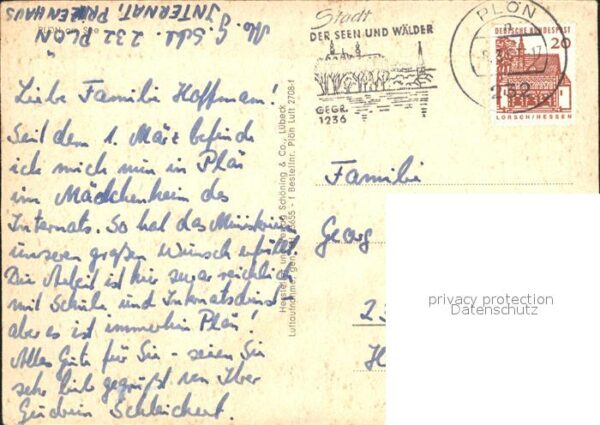 INTERNAT, PRINZENHAUS
232 PLÖN
Liebe Familie Hoffmann!
Seit dem 1. März befinde
ich mich nun in Plön
im Mädchenheim des
Internats. So hat das Ministerium
unseren großen Wunsch erfüllt.
Die Arbeit ist hier zwar reichlich
mit Schule und Internatsdienst
aber es ist immerhin Plön!
Alles Gute für Sie - seien Sie
sehr lieb gegrüßt von Ihrer
Gudrun Schleichert.
Schöning & Co., Lübeck
Bestellnr. Plön Luft 2708-f
Stadt
DER SEEN UND WÄLDER
GEGR.
1236
PLÖN
232
DEUTSCHE BUNDESPOST
20
LORSCH/HESSEN
Familie
Georg
privacy protection
Datenschutz